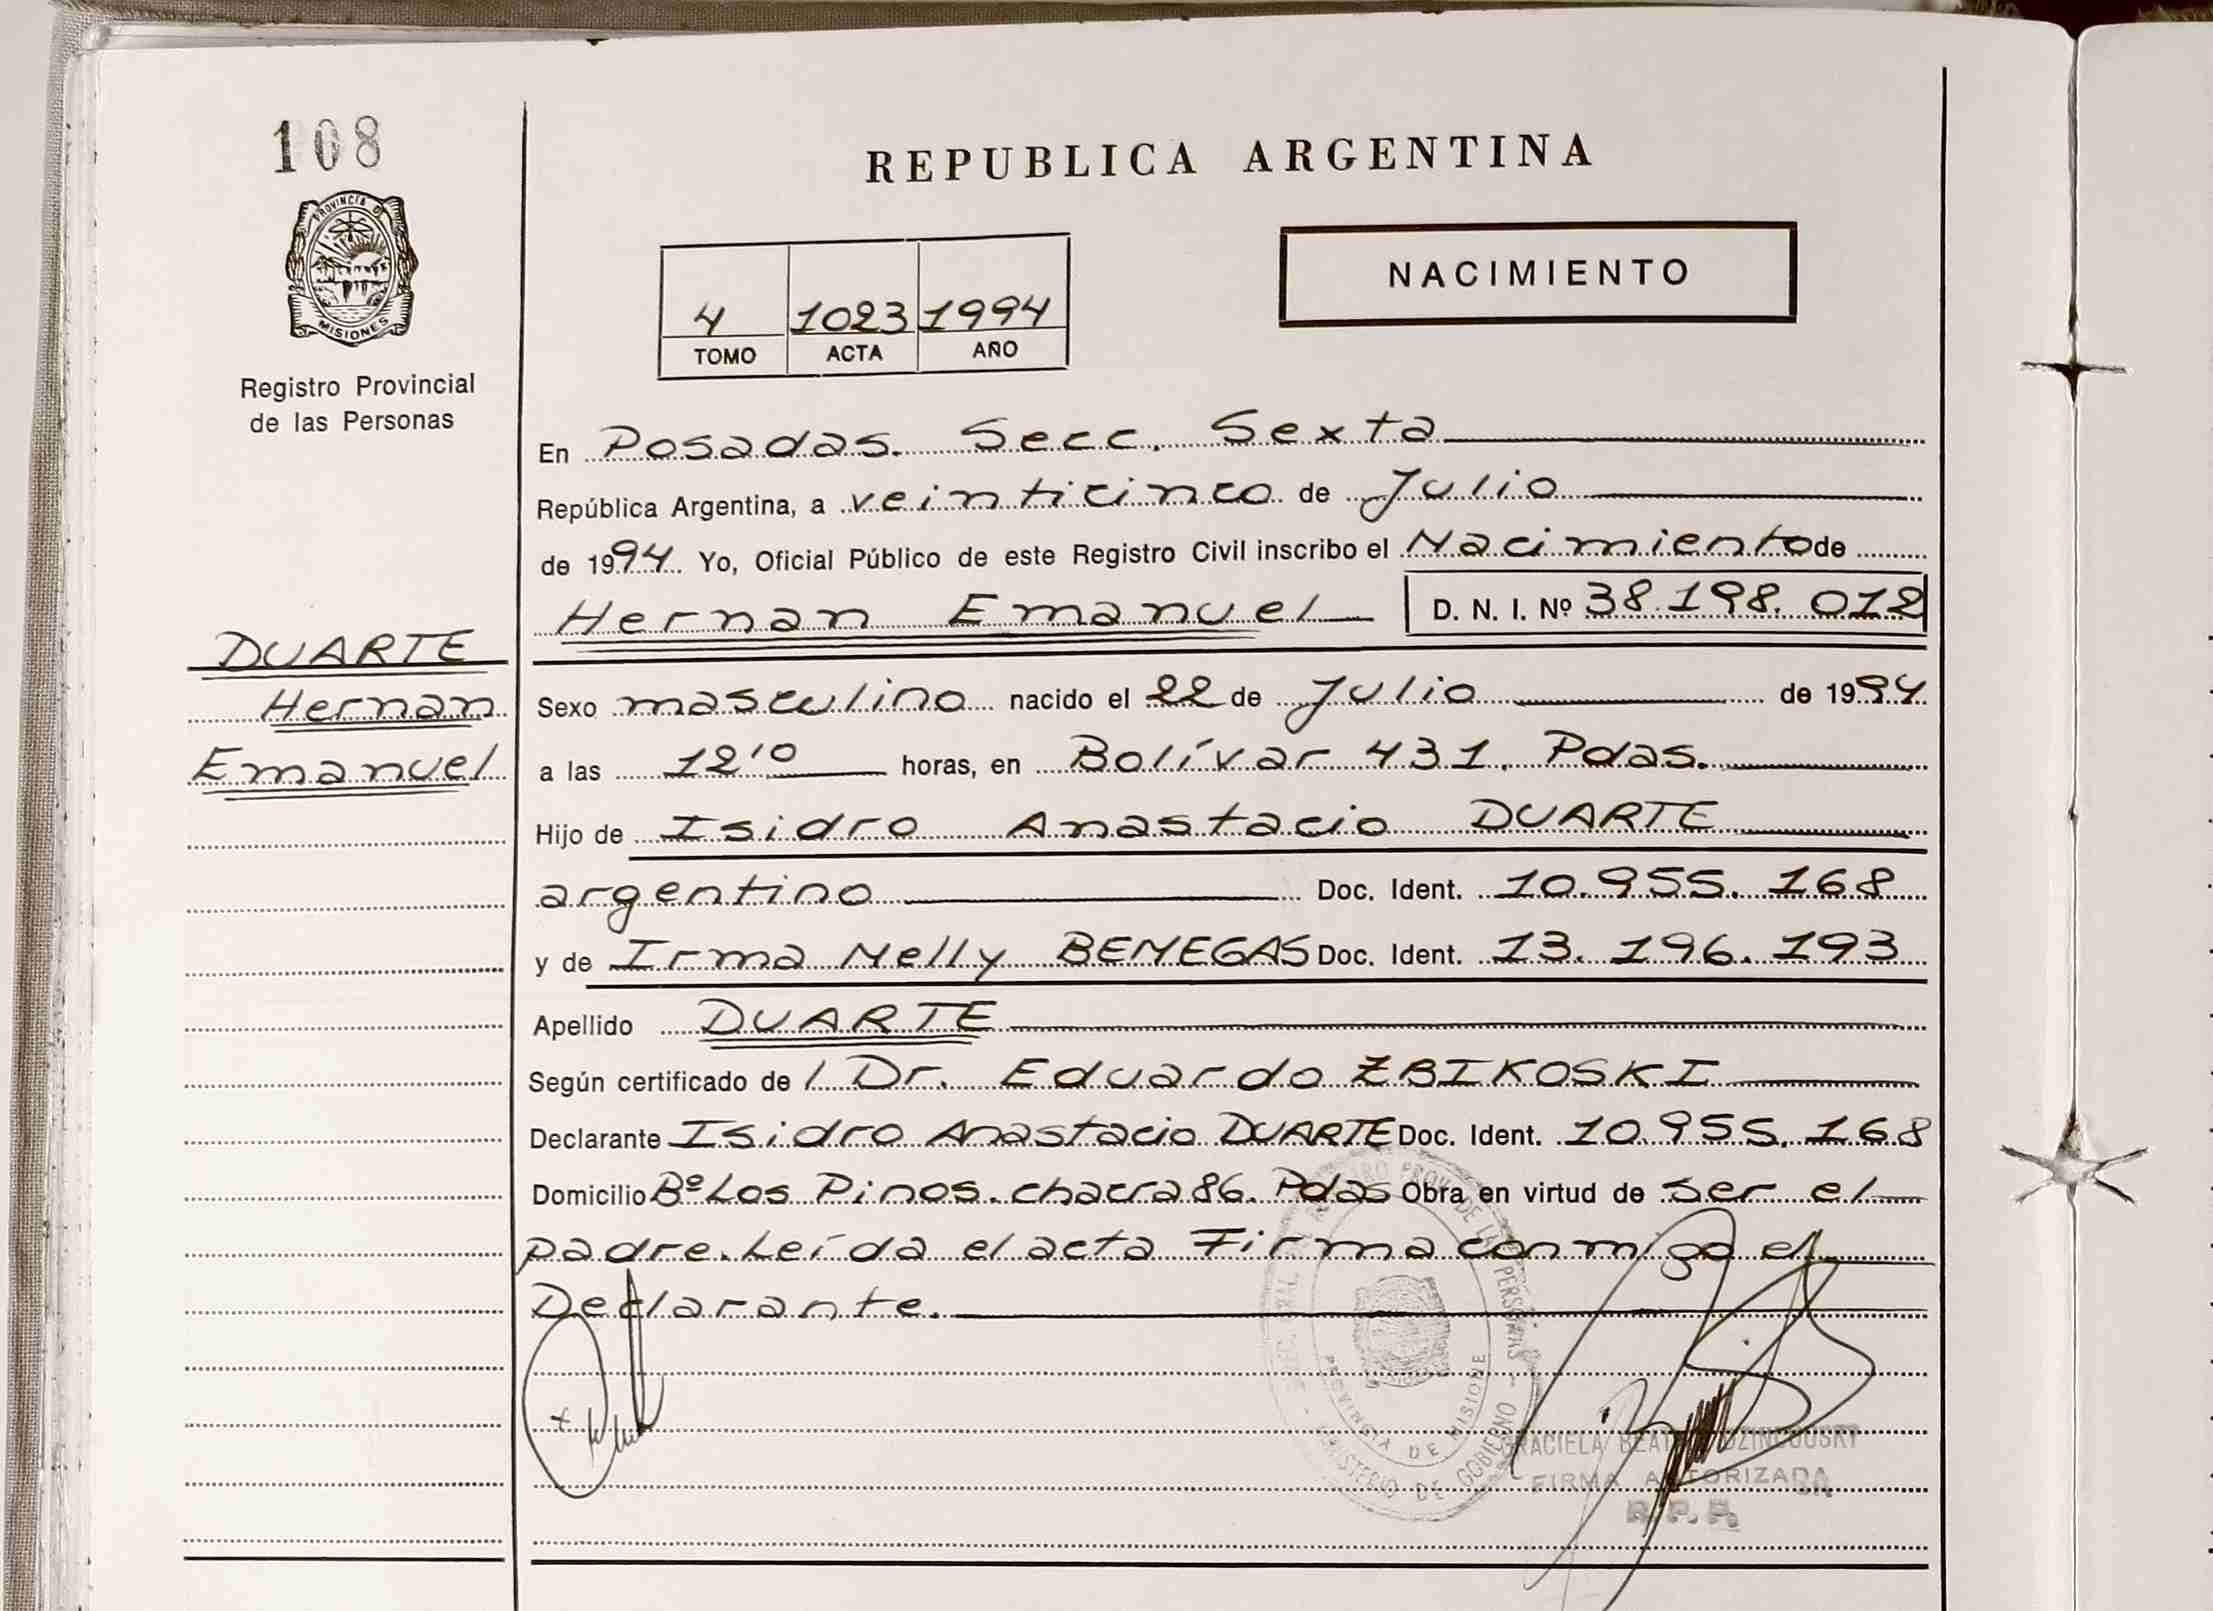 108
REPUBLICA ARGENTINA
PROVINCIA DE
MISIONES
Registro Provincial
de las Personas
NACIMIENTO
4 1023 1994
TOMO ACTA AÑO
En Posadas. Secc. Sexta
República Argentina, a veinticinco de Julio
de 1994. Yo, Oficial Público de este Registro Civil inscribo el Nacimiento de
Hernan Emanuel D. N. I. Nº 38.198.012
DUARTE
Hernan
Emanuel
Sexo masculino nacido el 22 de Julio de 1994
a las 12'0 horas, en Bolívar 431. Pdas.
Hijo de Isidro Anastacio DUARTE
argentino Doc. Ident. 10.955.168
y de Irma Nelly BENEGAS Doc. Ident. 13.196.193
Apellido DUARTE
Según certificado de / Dr. Eduardo ZBIKOSKI
Declarante Isidro Anastacio DUARTE Doc. Ident. 10.955.168
Domicilio Bº Los Pinos. chacra 86. Pdas Obra en virtud de ser el
padre. Leída el acta Firma conmigo el
Declarante.
PROVINCIA DE MISIONES
MINISTERIO DE GOBIERNO
GRACIELA
FIRMA AUTORIZADA
R. P. P.